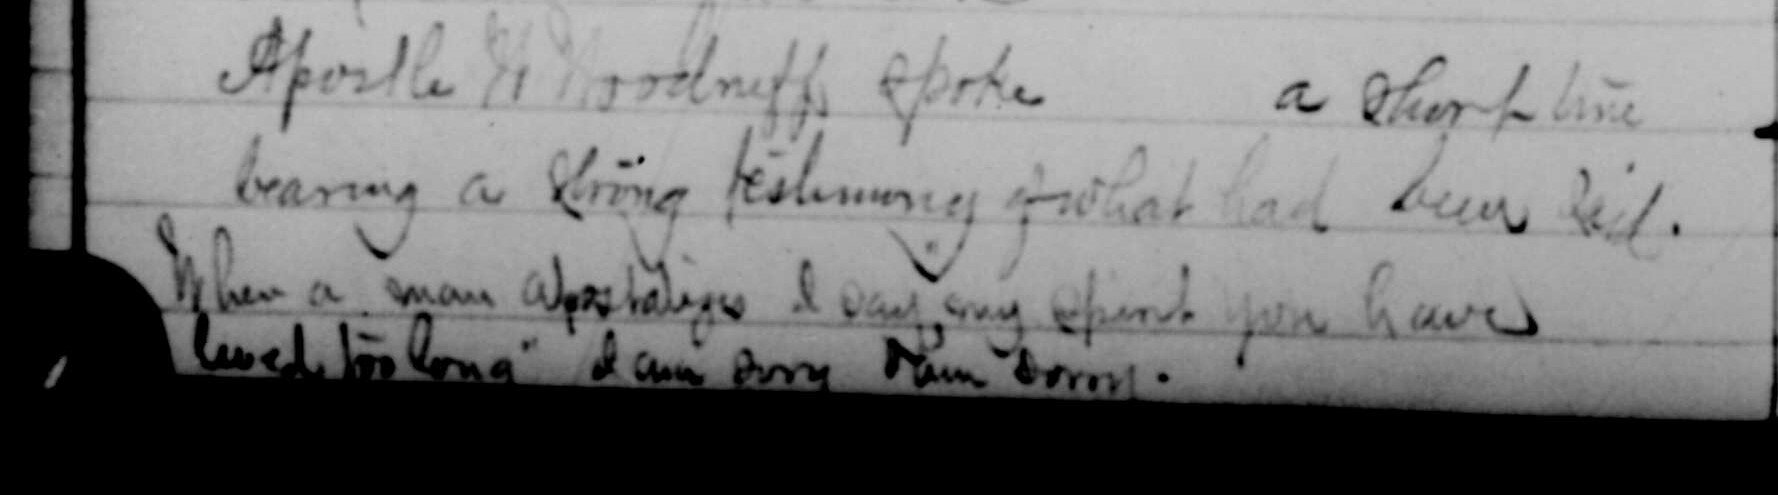 Apostle W Woodruff spoke a short time
bearing a strong testimony of what had been said.
When a man apostatizes I say my spirit you have
lived too long" I am sorry I am sorry.